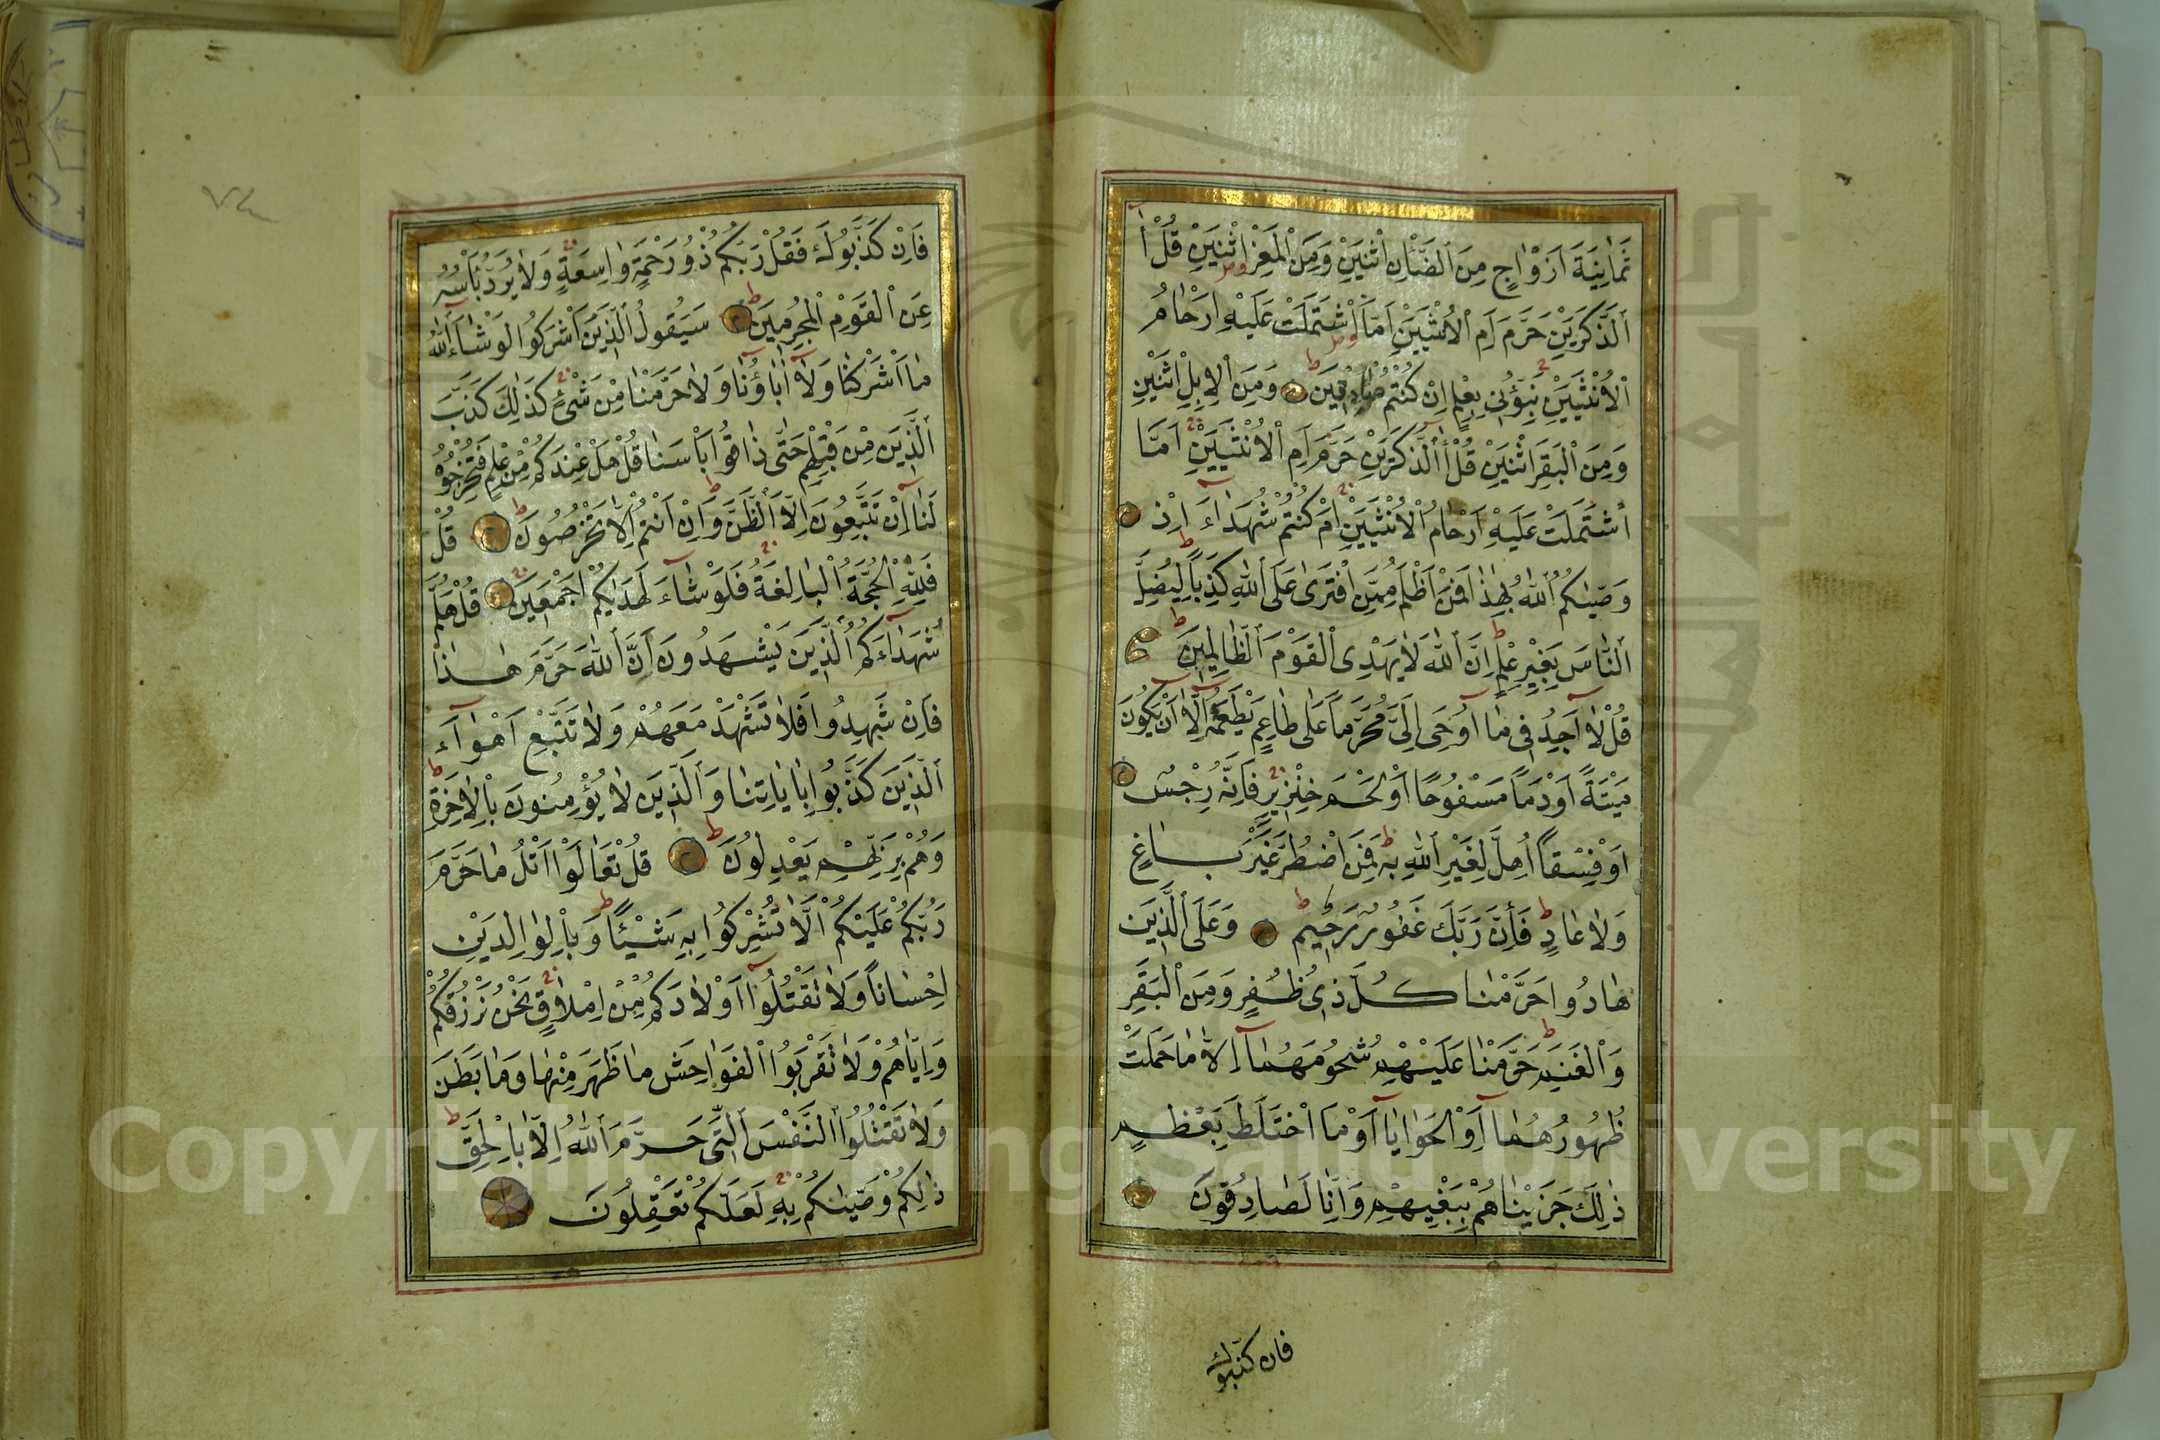 ثَمَانِيَةَ اَزْوَاجٍ مِنَ الضَّاْنِ اثْنَيْنِ وَمِنَ الْمَعْزِ اثْنَيْنِ قُلْ آ
الذَّكَرَيْنِ حَرَّمَ اَمِ الْاُنْثَيَيْنِ اَمَّا اشْتَمَلَتْ عَلَيْهِ اَرْحَامُ
الْاُنْثَيَيْنِ نَبِّؤُنِي بِعِلْمٍ اِنْ كُنْتُمْ صَادِقِينَ وَمِنَ الْاِبِلِ اثْنَيْنِ
وَمِنَ الْبَقَرِ اثْنَيْنِ قُلْ آلذَّكَرَيْنِ حَرَّمَ اَمِ الْاُنْثَيَيْنِ اَمَّا
اشْتَمَلَتْ عَلَيْهِ اَرْحَامُ الْاُنْثَيَيْنِ اَمْ كُنْتُمْ شُهَدَاءَ اِذْ
وَصّٰيكُمُ اللّٰهُ بِهٰذَا فَمَنْ اَظْلَمُ مِمَّنِ افْتَرٰى عَلَى اللّٰهِ كَذِبًا لِيُضِلَّ
النَّاسَ بِغَيْرِ عِلْمٍ اِنَّ اللّٰهَ لَا يَهْدِى الْقَوْمَ الظَّالِمِينَ
قُلْ لَا اَجِدُ فِى مَا اُوحِىَ اِلَىَّ مُحَرَّمًا عَلٰى طَاعِمٍ يَطْعَمُهُ اِلَّا اَنْ يَكُونَ
مَيْتَةً اَوْ دَمًا مَسْفُوحًا اَوْ لَحْمَ خِنْزِيرٍ فَاِنَّهُ رِجْسٌ
اَوْ فِسْقًا اُهِلَّ لِغَيْرِ اللّٰهِ بِهِ فَمَنِ اضْطُرَّ غَيْرَ بَاغٍ
وَلَا عَادٍ فَاِنَّ رَبَّكَ غَفُورٌ رَحِيمٌ وَعَلَى الَّذِينَ
هَادُوا حَرَّمْنَا كُلَّ ذِى ظُفُرٍ وَمِنَ الْبَقَرِ
وَالْغَنَمِ حَرَّمْنَا عَلَيْهِمْ شُحُومَهُمَا اِلَّا مَا حَمَلَتْ
ظُهُورُهُمَا اَوِ الْحَوَايَا اَوْ مَا اخْتَلَطَ بِعَظْمٍ
ذٰلِكَ جَزَيْنَاهُمْ بِبَغْيِهِمْ وَاِنَّا لَصَادِقُونَ
فان كذبوك
فَاِنْ كَذَّبُوكَ فَقُلْ رَبُّكُمْ ذُو رَحْمَةٍ وَاسِعَةٍ وَلَا يُرَدُّ بَاْسُهُ
عَنِ الْقَوْمِ الْمُجْرِمِينَ سَيَقُولُ الَّذِينَ اَشْرَكُوا لَوْ شَاءَ اللّٰهُ
مَا اَشْرَكْنَا وَلَا اٰبَاؤُنَا وَلَا حَرَّمْنَا مِنْ شَىْءٍ كَذٰلِكَ كَذَّبَ
الَّذِينَ مِنْ قَبْلِهِمْ حَتّٰى ذَاقُوا بَاْسَنَا قُلْ هَلْ عِنْدَكُمْ مِنْ عِلْمٍ فَتُخْرِجُوهُ
لَنَا اِنْ تَتَّبِعُونَ اِلَّا الظَّنَّ وَاِنْ اَنْتُمْ اِلَّا تَخْرُصُونَ قُلْ
فَلِلّٰهِ الْحُجَّةُ الْبَالِغَةُ فَلَوْ شَاءَ لَهَدٰيكُمْ اَجْمَعِينَ قُلْ هَلُمَّ
شُهَدَاءَكُمُ الَّذِينَ يَشْهَدُونَ اَنَّ اللّٰهَ حَرَّمَ هٰذَا
فَاِنْ شَهِدُوا فَلَا تَشْهَدْ مَعَهُمْ وَلَا تَتَّبِعْ اَهْوَاءَ
الَّذِينَ كَذَّبُوا بِاٰيَاتِنَا وَالَّذِينَ لَا يُؤْمِنُونَ بِالْاٰخِرَةِ
وَهُمْ بِرَبِّهِمْ يَعْدِلُونَ قُلْ تَعَالَوْا اَتْلُ مَا حَرَّمَ
رَبُّكُمْ عَلَيْكُمْ اَلَّا تُشْرِكُوا بِهِ شَيْئًا وَبِالْوَالِدَيْنِ
اِحْسَانًا وَلَا تَقْتُلُوا اَوْلَادَكُمْ مِنْ اِمْلَاقٍ نَحْنُ نَرْزُقُكُمْ
وَاِيَّاهُمْ وَلَا تَقْرَبُوا الْفَوَاحِشَ مَا ظَهَرَ مِنْهَا وَمَا بَطَنَ
وَلَا تَقْتُلُوا النَّفْسَ الَّتِى حَرَّمَ اللّٰهُ اِلَّا بِالْحَقِّ
ذٰلِكُمْ وَصّٰيكُمْ بِهِ لَعَلَّكُمْ تَعْقِلُونَ
Copyright © King Saud University